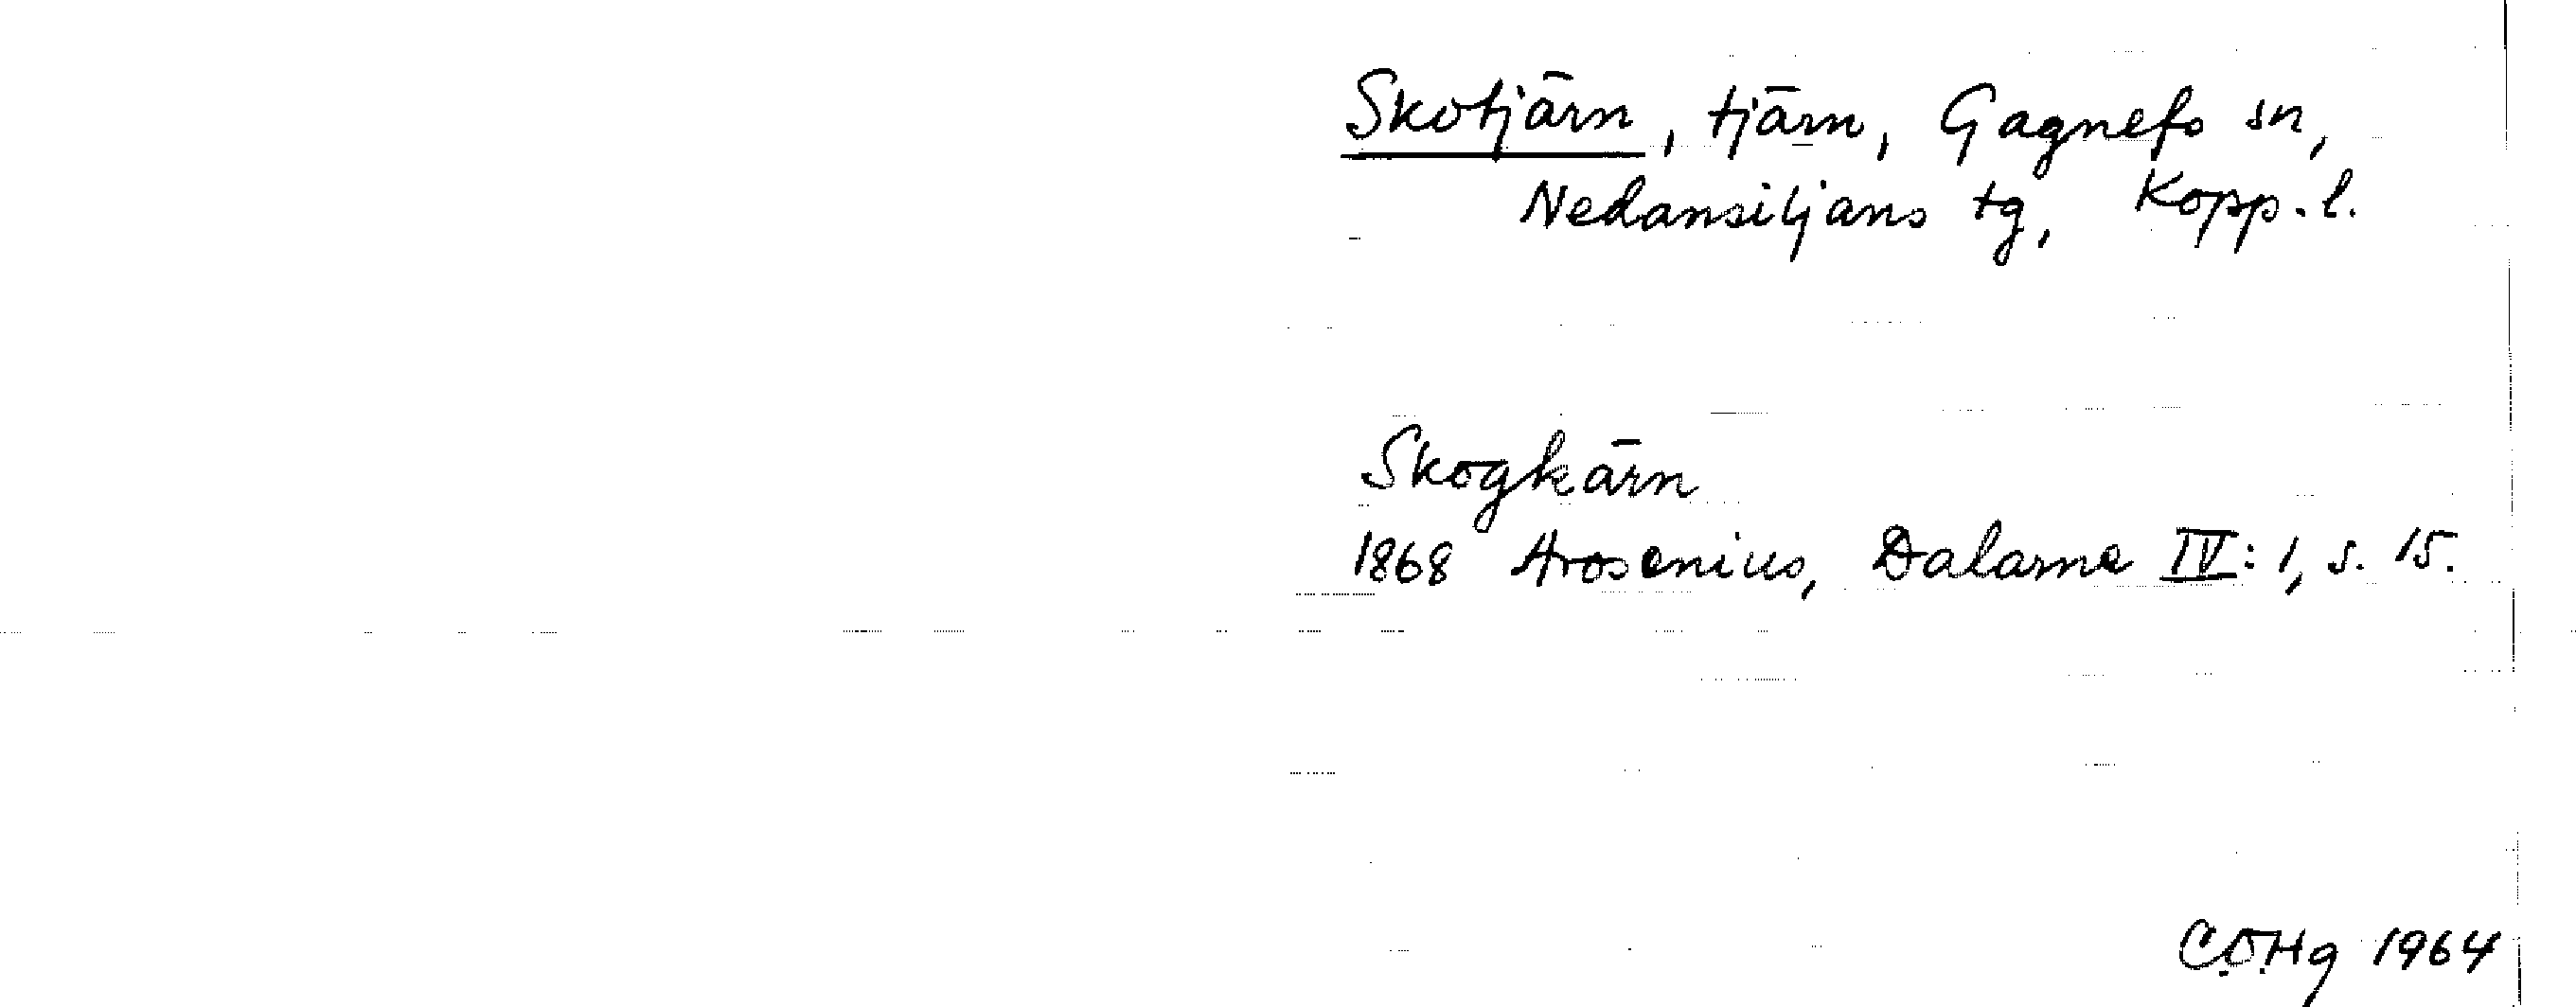 Skotjärn, tjärn, Gagnefs sn,
Nedansiljans tg, Kopp. l.
Skogkärn
1868 Arosenius, Dalarne IV: 1, s. 15.
C.O.Hg 1964